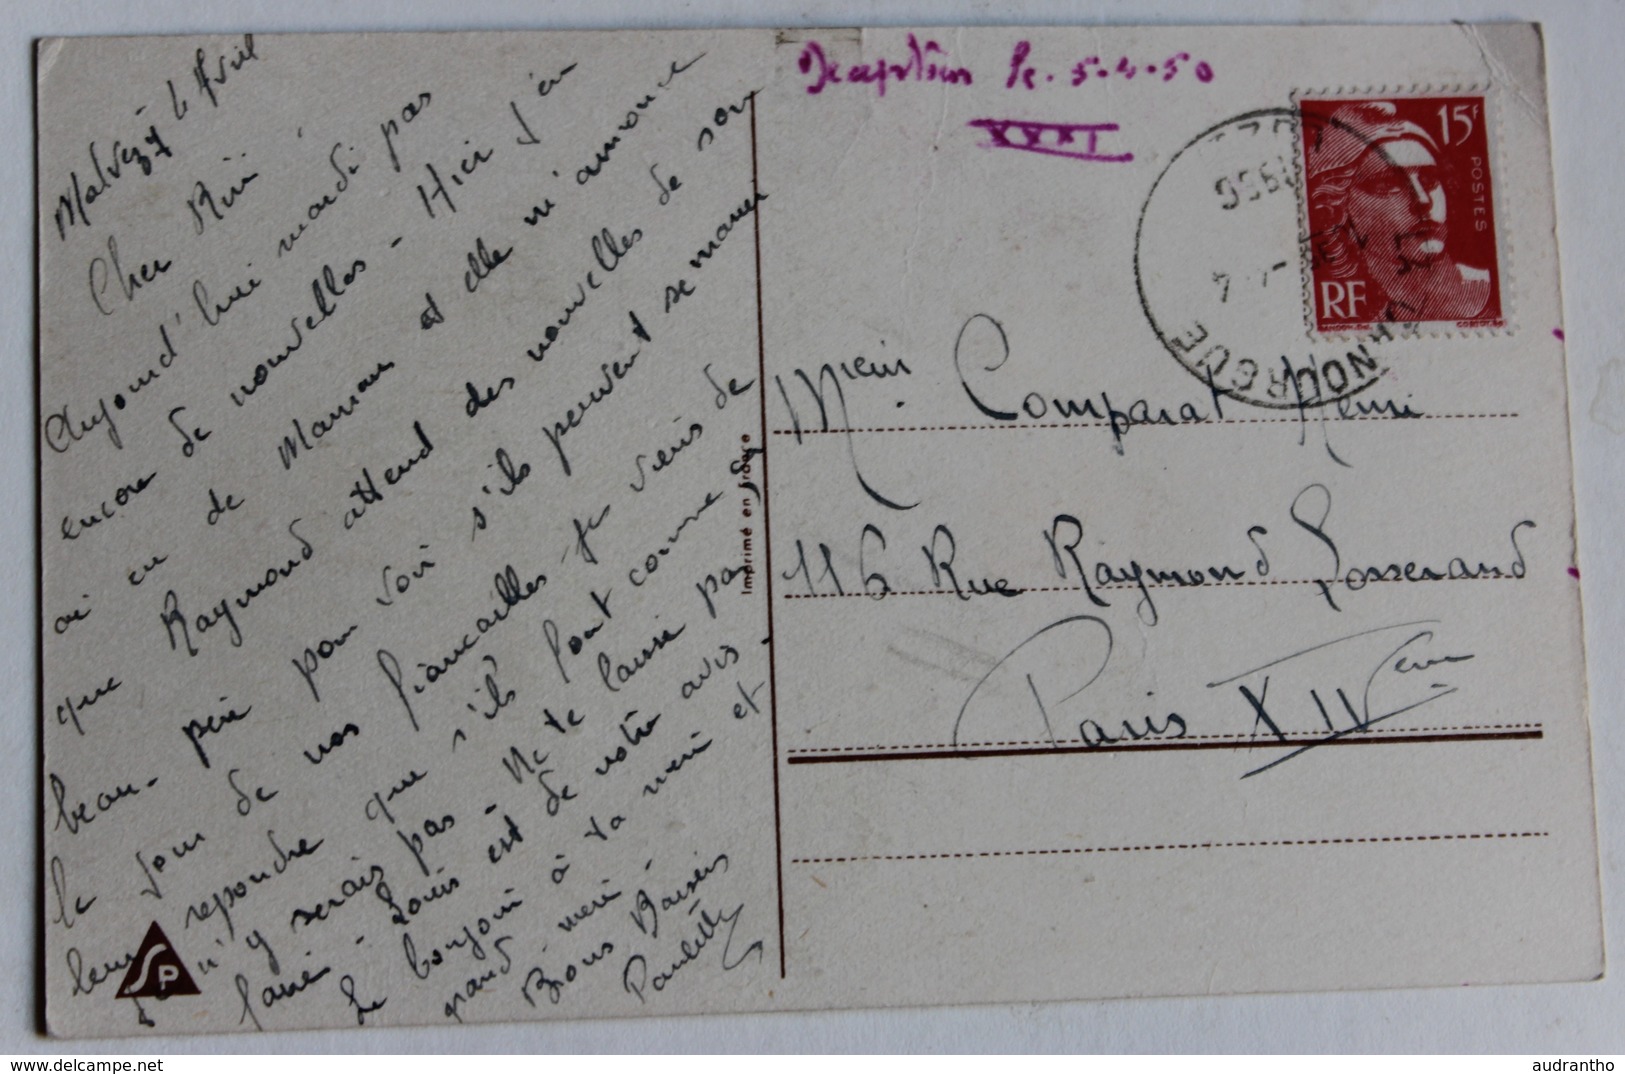 Malvezy 4 Avril
Cher Riri
Aujourd'hui mardi pas
encore de nouvelles - Hier j'en
ai eu de Maman et elle m'annonce
que Raymond attend des nouvelles de son
beau-père pour voir s'ils peuvent se marier
le jour de nos fiançailles - Je viens de
leur repondre que s'ils font comme
je n'y serais pas - Ne te laisse pas
faire - Louis est de notre avis -
Le bonjour à ta mère et
grand'mère -
Bons Baisers
Paulette
SP
Imprimé en France
Reception le 5-4-50
XXXI
15F
POSTES
RF
1950
NOURGUE
Comparat Henri
116 Rue Raymond Losserand
Paris XIVeme
audrantho
delcampe.net